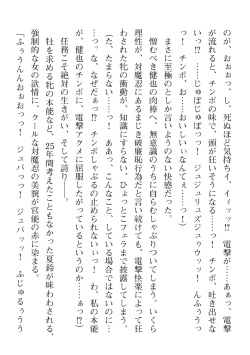 のが、おぉぉっ、し、死ぬほど気持ちイ、イィッ⁉　電撃が……あぁっ、電撃
が流れると、チンポの味で、頭が狂いそうになるっ……！　チンポ、吐き出せな
いっ⁉　……じゅぼじゅぼっ……ジュジュリュズジュゥウッッ！　んふぅうっ
っ！　チンポ、お……おいしいいぃなんてぇぇ……っ」
　まさに至極のとしか言いようのない快感だった。ズ
　憎むべき健也の肉棒へ、無意識のうちに自らむしゃぶりついてしまう。いくら
理性が、対魔忍にあるまじき破廉恥行為だと言い聞かせても、電撃快楽によって狂
わされた牝の衝動が、知識にすらない、ひょっとこフェラまで披露してしまう。
（だ、たまらない……っ！　あぁっ、こんなこと、している場合ではないのに…
…っ。な、なぜだぁっ⁉　チンポしゃぶるの止められないぃっ！　わ、私の本能
が、健也のチンポに、電撃アクメに屈服したがっているというのか⁉）
　任務こそ絶対の生きがい、そして誇り――。
　牡を求める牝の本能など、25年間考えたこともなかった夏鈴が味わわされる、
強制的な女の欲情に、クールな対魔忍の美貌が官能の赤に染まる。
「ふぅうんんおぉおっっ！　ジュパっっ！　ジュパッッ！　ふじゅるぅうう